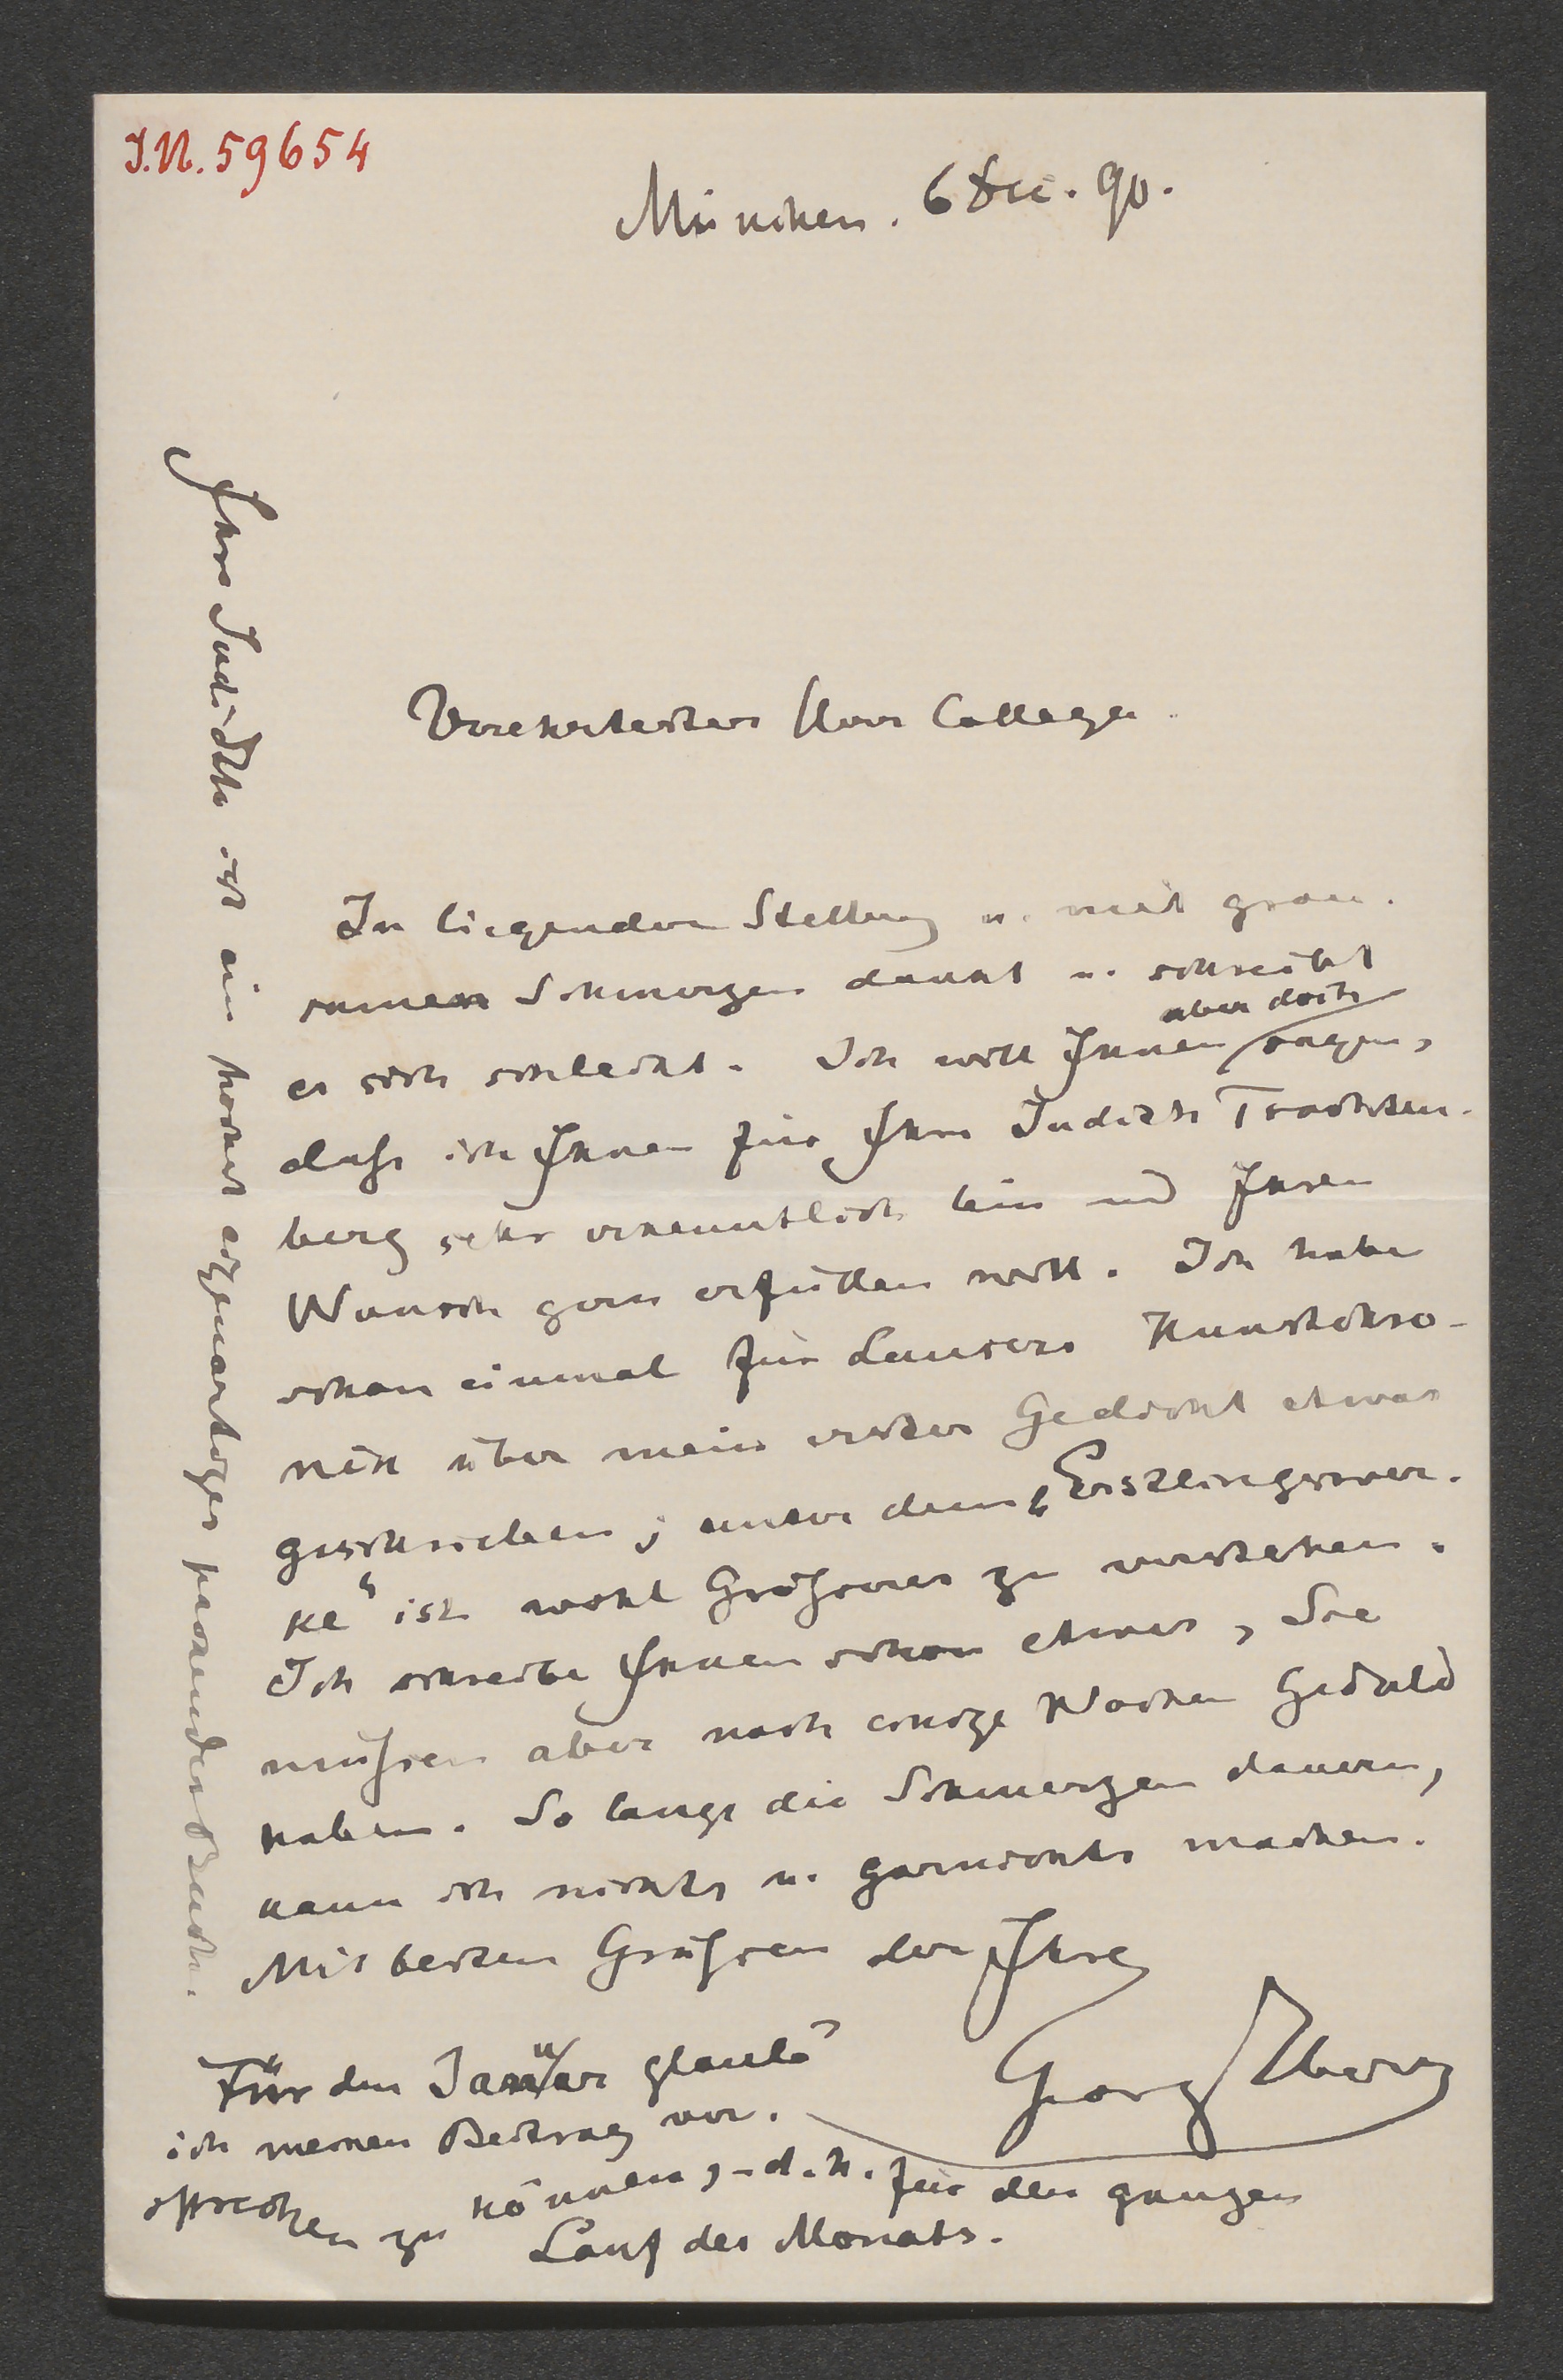 I.N. 59654
München. 6 Dec. 90.
Verehrtester Herr College.
In liegender Stellung u. mit grau-
samen Schmerzen dankt u. schreibt
es sich schlecht. Ich will Ihnen aber doch sagen,
daß ich Ihnen für Ihre Judith Trachten-
berg sehr erkenntlich bin und Ihren
Wunsch gern erfüllen will. Ich habe
schon einmal für Lausers Kunstchro-
nik über mein erstes Gedicht etwas
geschrieben; unter dem „Erstlingswer-
ke“ ist wohl Größeres zu verstehen.
Ich schreibe Ihnen schon etwas, Sie
müßen aber noch einige Wochen Geduld
haben. So lange die Schmerzen dauern,
kann ich nichts u. garnichts machen.
Mit besten Grüßen der Ihre
Georg Ebers
Für den Januar glaube
ich meinen Beitrag ver-
sprechen zu können, - d. h. für den ganzen
Lauf des Monats.
Ihre Judith ist ein hochst eigenartiges packendes Buch.